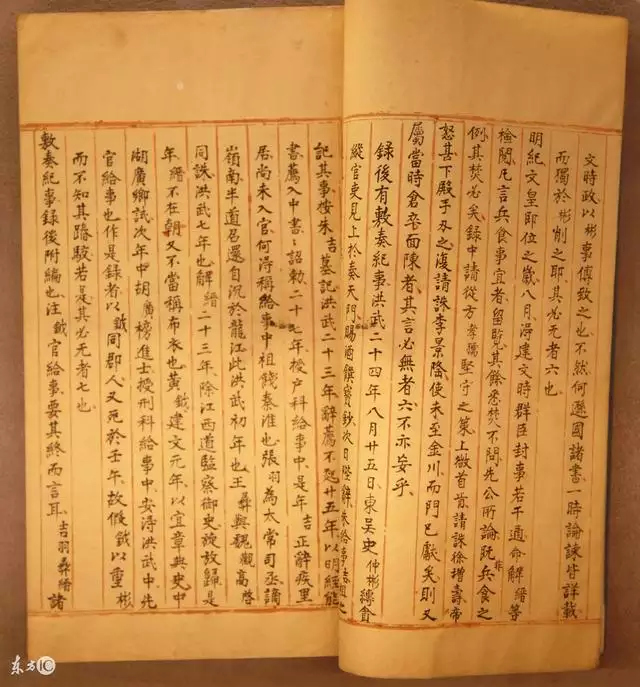 文時政以彬事傅致之也不然何遜國諸書一時論諫皆詳載
而獨於彬削之耶其必無者六也
明紀文皇即位之歲八月淂建文時群臣封事若干通命解縉等
檢閱凡言兵食事宜者留覧其餘悉焚不問先公所論既非兵食之
例其焚必矣録中請從方孝孺堅守之策上微首肯請誅徐增壽帝
怒甚下殿手刃之復請誅李景隆使未至金川而門已獻矣則又
屬當時倉卒面陳者其言必無者六不亦妄乎
録後有敷奏紀事洪武二十四年八月廿五日東吴史仲彬縳貪
縱官吏見上於奏天門賜酒饌寳鈔次日陛辭朱給事吉祖之
記其事按朱吉墓記洪武二十三年辭薦不起廿五年以明經能
書薦入中書詔勅二十七年授户科給事中是年吉正辭疾里
居尚未入官何淂稱給事中祖餞秦淮也張羽為太常司丞謫
嶺南半道召還自沉於龍江此洪武初年也王彛與魏觀高啓
同誅洪武七年也解縉二十三年除江西道監察御史旋放歸是
年縉不在朝又不當稱布衣也黄鉞建文元年以宜章典史中
湖廣鄉試次年中胡廣榜進士授刑科給事中安淂洪武中先
官給事也作是録者以鉞同郡人又死於壬午故假鉞以重彬
而不知其踳駁若是其必无者七也
敷奏紀事録後附編也注鉞官給事要其終而言耳吉羽彛縉諸
东方IC